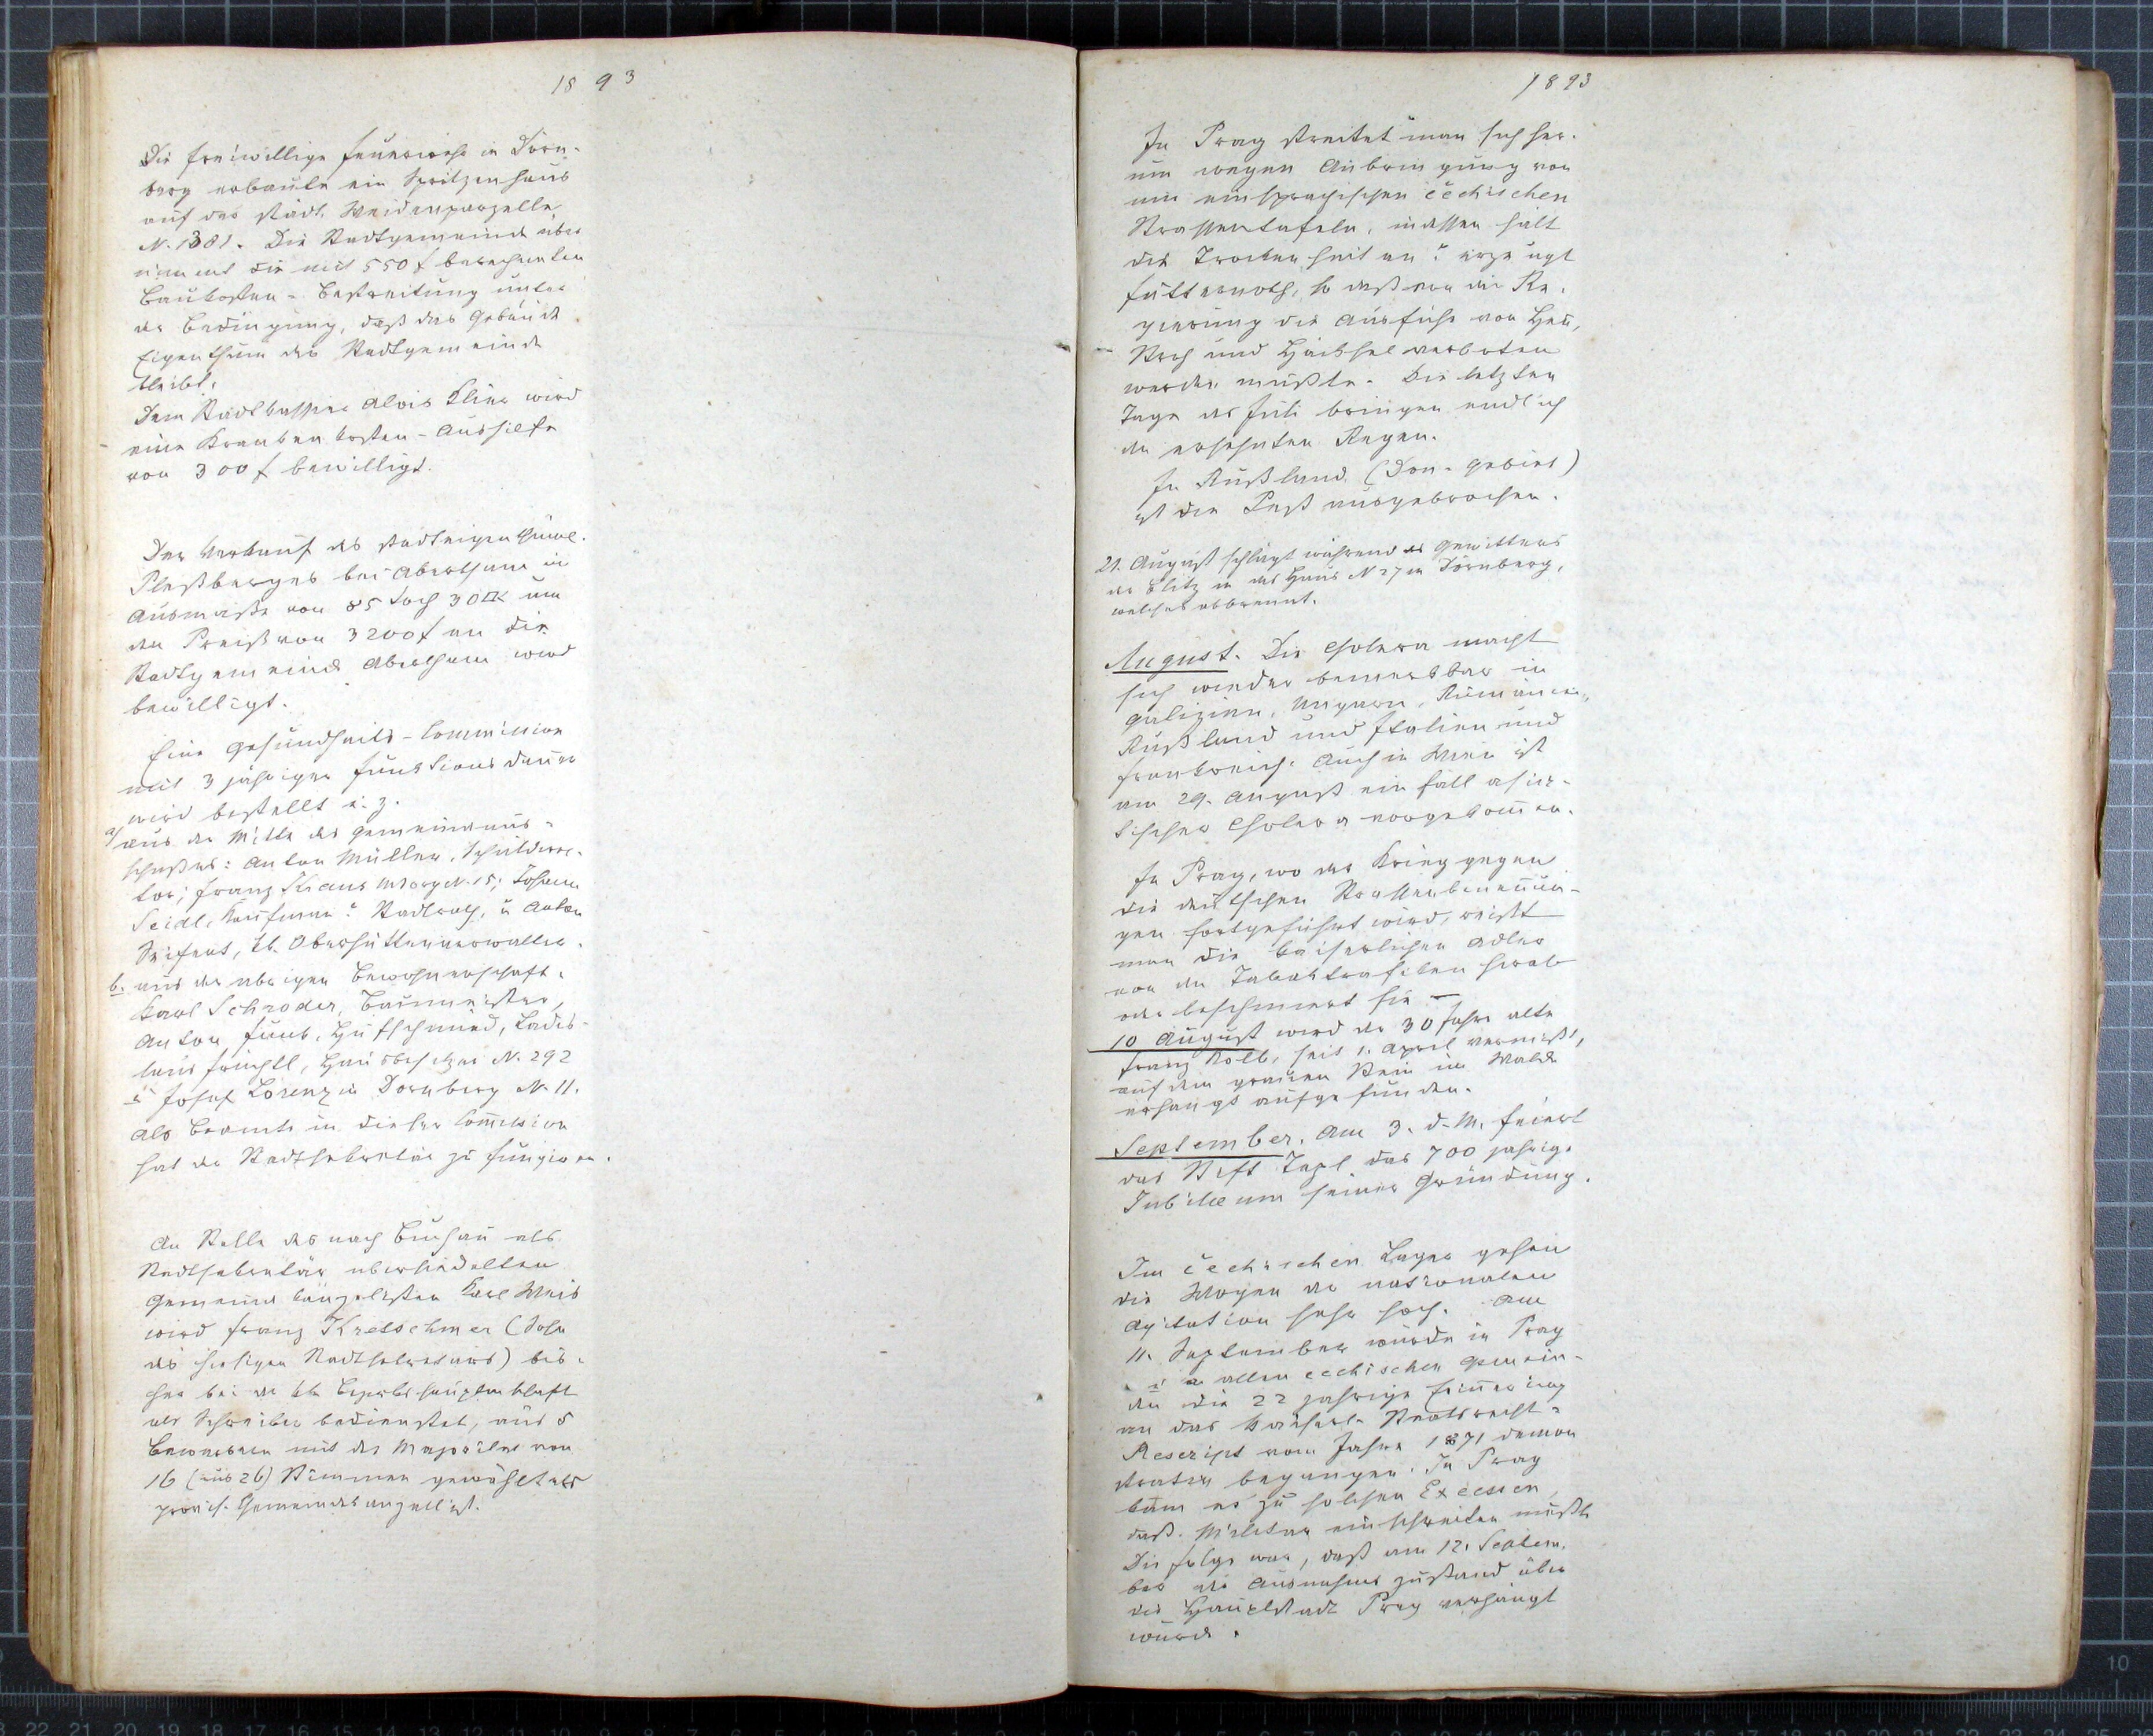 1893
Die freiwillige Feuerwehr in Dörn-
berg erbaute ein Spritzenhaus
auf der städt. Weidenparzelle
N. 1381. Die Stadtgemeinde über
nimmt die mit 550 f berechneten
Baukosten-Bestreitung unter
der Bedingung, daß das Gebäude
Eigenthum der Stadtgemeinde
bleibt.
Dem Stadtkassier Alois Klier wird
eine Krankenkosten-Aushilfe
von 300 f bewilligt.
Der Verkauf des stadteigenthüml.
Pleßberges bei Abertham im
Ausmaße von 85 Joch 30 □K um
den Preiß von 3200 f an die
Stadtgemeinde Abertham wird
bewilligt.
Eine Gesundheits-Commission
mit 3 jähriger Funktionsdauer
wird bestellt u. z.
a/ aus der Mitte des Gemeindeaus-
schußes: Anton Müller, Schuldirec-
tor; Franz Kraus N. 15; Johann
Seidl, Kaufmann u. Stadtrath, u Anton
Seifert, kk. Oberhüttenverwalter.
b. aus der übrigen Bewohnerschaft.
Karl Schröder, Baumeister,
Anton Funk, Hufschmied, Ladis-
laus Hausbesitzer N. 292
u Josef Lorenz in Dörnberg N. 11.
Als Beamte in dieser Commission
hat der Stadtsekretär zu fungieren.
An Stelle des nach Buchau als
Stadtsekretär übersiedelten
Gemeindekanzelisten Karl Weis
wird Franz Kretschmer (Sohn
des hiesigen Stadtsekretärs) bis-
her bei der kk Bezirkshauptmannschaft
als Schreiber bedienstet, aus 5
Bewerbern mit der Majorität von
16 (aus 26) Stimmen gewählt als
provis. Gemeindekanzellist.
1893
In Prag streitet man sich her-
um wegen Anbringung von
nur einsprachischen čechischen
Strassentafeln, indessen hält
die Trockenheit an u. erzeugt
Futternoth, so daß von der Re-
gierung die Ausfuhr von Heu,
Stroh und Häcksel verboten
werden mußte. Die letzten
Tage des Juli bringen endlich
den ersehnten Regen.
In Rußland (Don-gebiet)
ist die Pest ausgebrochen.
21. August schlägt während des Gewitters
der Blitz in das Haus N 27 in Dörnberg,
welches abbrennt.
August. Die Cholera macht
sich wieder bemerkbar in
Galizien, Ungarn, Rumänien,
Rußland und Italien und
Frankreich. Auch in Wien ist
am 29. August ein Fall asia-
tischer Cholera vorgekommen.
In Prag, wo der Krieg gegen
die deutschen Strassenbenennun-
gen fortgeführt wird, reißt
man die kaiserlichen Adler
von den Tabaktrafiken herab
oder beschmiert sie —
10 August wird der 30 Jahre alte
Franz Kolb, seit 1. April vermißt,
auf dem grauen Stein im Walde
erhängt aufgefunden.
September. Am 3. d. M. feiert
das Stift Tepl das 700 jährige
Jubilæum seiner Gründung.
Im čechischen Lager gehen
die Wogen der nationalen
Agitation sehr hoch. Am
11. September wurde in Prag
u in allen čechischen Gemein-
den die 22 jährige Erinnerung
an das kaiserl. Staatsrecht-
Rescript vom Jahre 1871 demon
strativ begangen. In Prag
kam es zu solchen Excessen,
daß Militär einschreiten mußte
Die Folge war, daß am 12. Septem.
ber der Ausnahmszustand über
die Hauptstadt Prag verhängt
wurde.